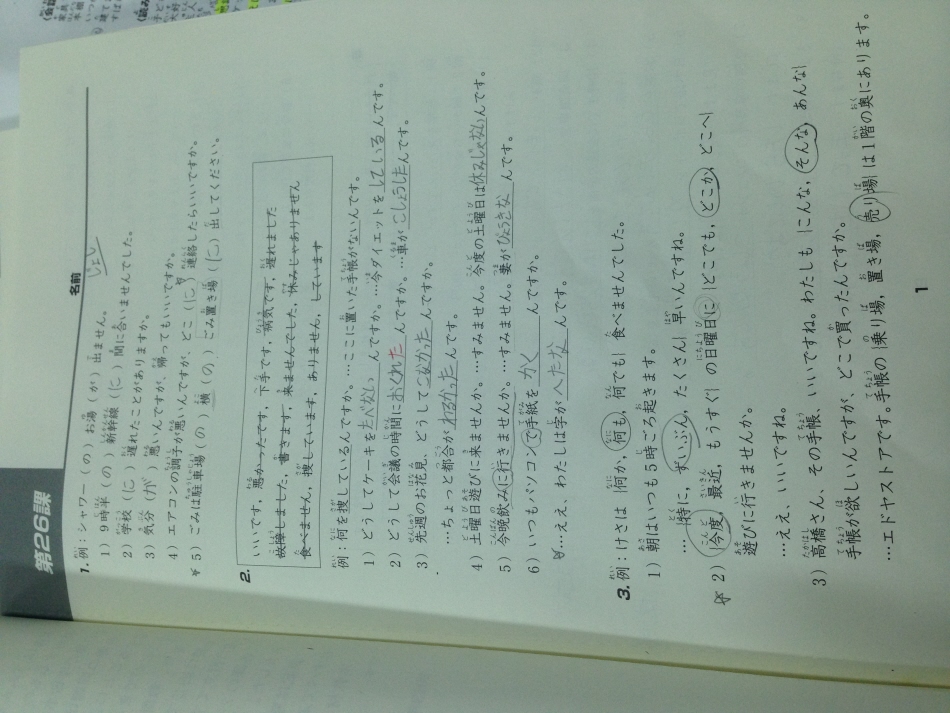 第26課
名前 じょと
1. 例：シャワー（の）お湯（が）出ません。
1）9時半（の）新幹線（に）間に合いませんでした。
2）学校（に）遅れたことがありますか。
3）気分（が）悪いんですが、帰ってもいいですか。
4）エアコンの調子が悪いんですが、どこ（に）連絡したらいいですか。
5）ごみは駐車場（の）横（の）ごみ置き場（に）出してください。
2. いいです，悪かったです，下手です，病気です，遅れました
故障しました，書きます，来ませんでした，休みじゃありません
食べません，捜しています，ありません，しています
例：何を捜しているんですか。…ここに置いた手帳がないんです。
1）どうしてケーキをたべないんですか。…今ダイエットをしているんです。
2）どうして会議の時間におくれたんですか。…車がこしょうしたんです。
3）先週のお花見、どうしてこなかったんですか。
…ちょっと都合がわるかったんです。
4）土曜日遊びに来ませんか。…すみません。今度の土曜日は休みじゃないんです。
5）今晩飲みに行きませんか。…すみません。妻がびょうきなんです。
6）いつもパソコンで手紙をかくんですか。
…ええ、わたしは字がへたなんです。
3. 例：けさは｛何か，何も，何でも｝食べませんでした。
1）朝はいつも5時ごろ起きます。
…｛特に，ずいぶん，たくさん｝早いんですね。
2）｛今度，最近，もうすぐ｝の日曜日に｛どこでも，どこか，どこへ｝
遊びに行きませんか。
…ええ、いいですね。
3）高橋さん、その手帳、いいですね。わたしも｛こんな，そんな，あんな｝
手帳が欲しいんですが、どこで買ったんですか。
…エドヤストアです。手帳の｛乗り場，置き場，売り場｝は1階の奥にあります。
1